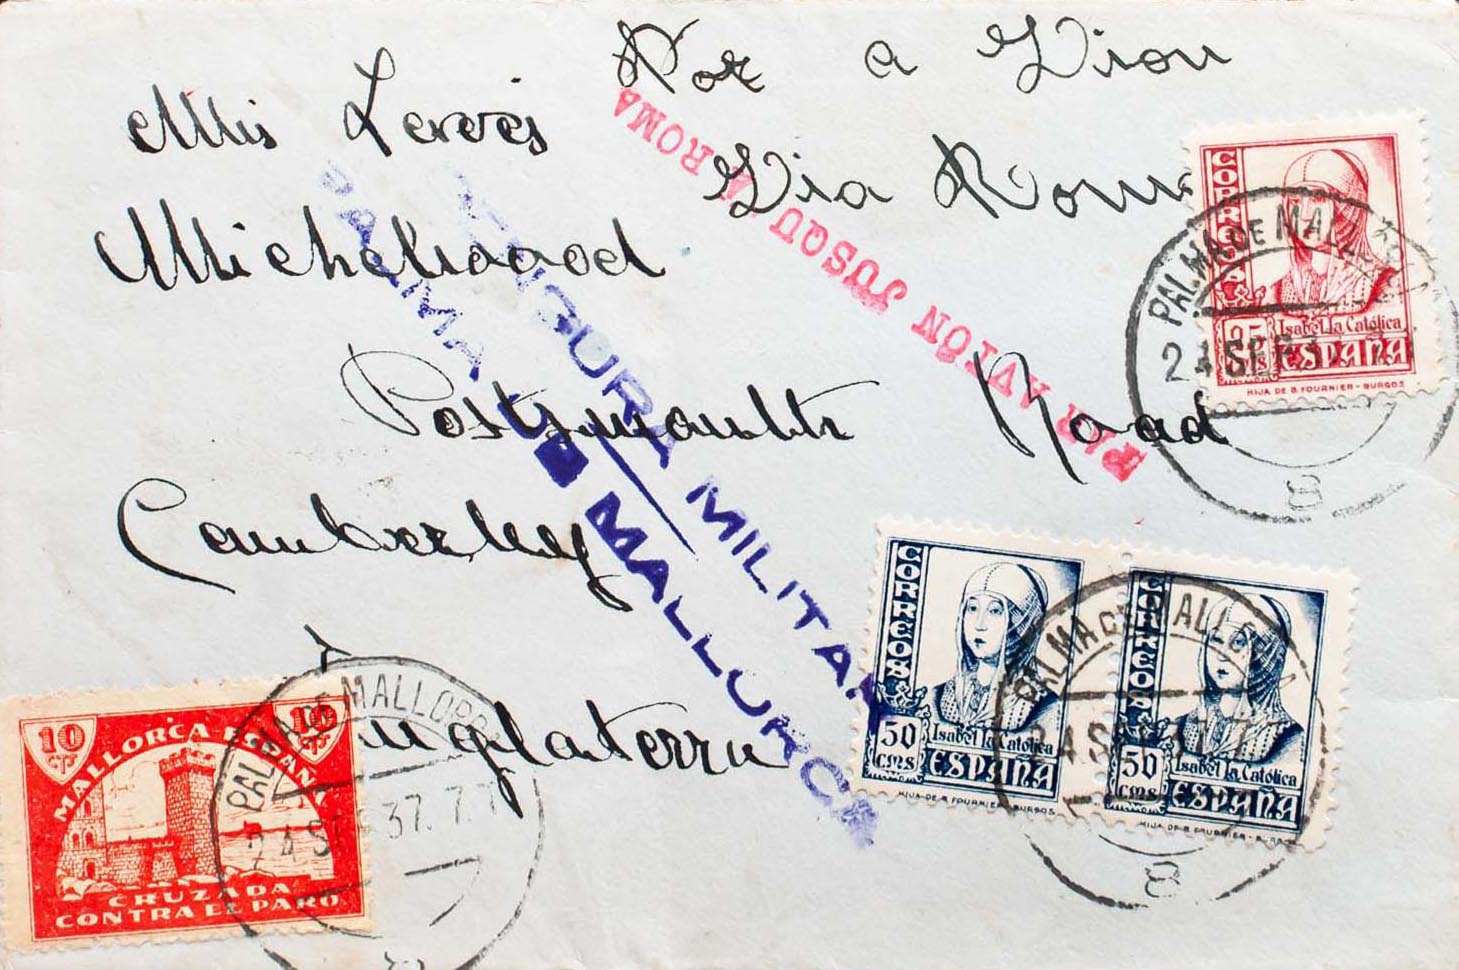 Por avion
Via Roma
Miss Lewis
Michelwood
Postsmouth Road
Camberley
Inglaterra
PAR AVIÓN JUSQU'A ROMA
CENSURA MILITAR
PALMA DE MALLORCA
CORREOS
25 cts
Isabel la Católica
ESPAÑA
HIJA DE B. FOURNIER - BURGOS
PALMA DE MALLORCA
24 SEP. 37
8
CORREOS
50 cms
Isabel la Católica
ESPAÑA
HIJA DE B. FOURNIER - BURGOS
CORREOS
50 cms
Isabel la Católica
ESPAÑA
HIJA DE B. FOURNIER - BURGOS
PALMA DE MALLORCA
24 SEP. 37
8
10 cts
10 cts
MALLORCA
CRUZADA
CONTRA EL PARO
PALMA DE MALLORCA
24 SEP. 37. 7.T
8